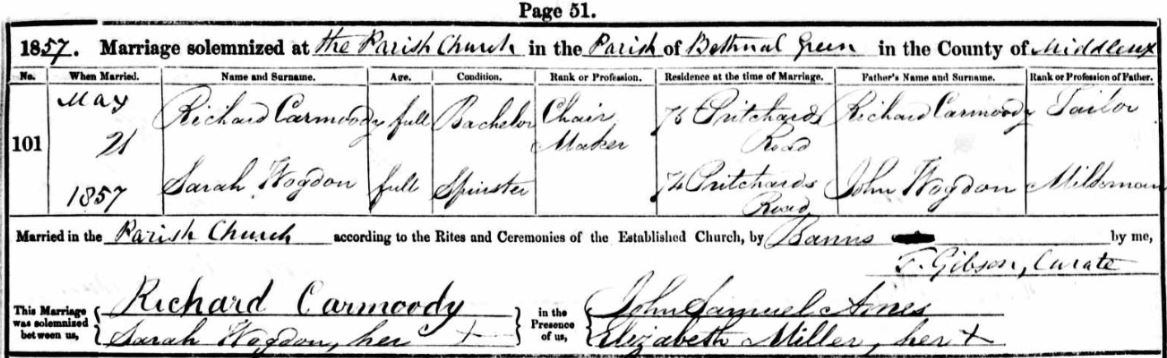 Page 51.
1857. Marriage solemnized at the Parish Church in the Parish of Bethnal Green in the County of Middlesex
No. When Married. Name and Surname. Age. Condition. Rank or Profession. Residence at the time of Marriage. Father's Name and Surname. Rank or Profession of Father.
101 May 21 1857
Richard Carmoody full Bachelor Chair Maker Pritchards Road Richard Carmoody Tailor
Sarah Wogdon full Spinster Pritchards Road John Wogdon
Married in the Parish Church according to the Rites and Ceremonies of the Established Church, by Banns by me,
T. Gibson, Curate
This Marriage was solemnized between us, Richard Carmoody in the Presence of us, John Samuel
Sarah Wogdon, her X Elizabeth Miller, her X